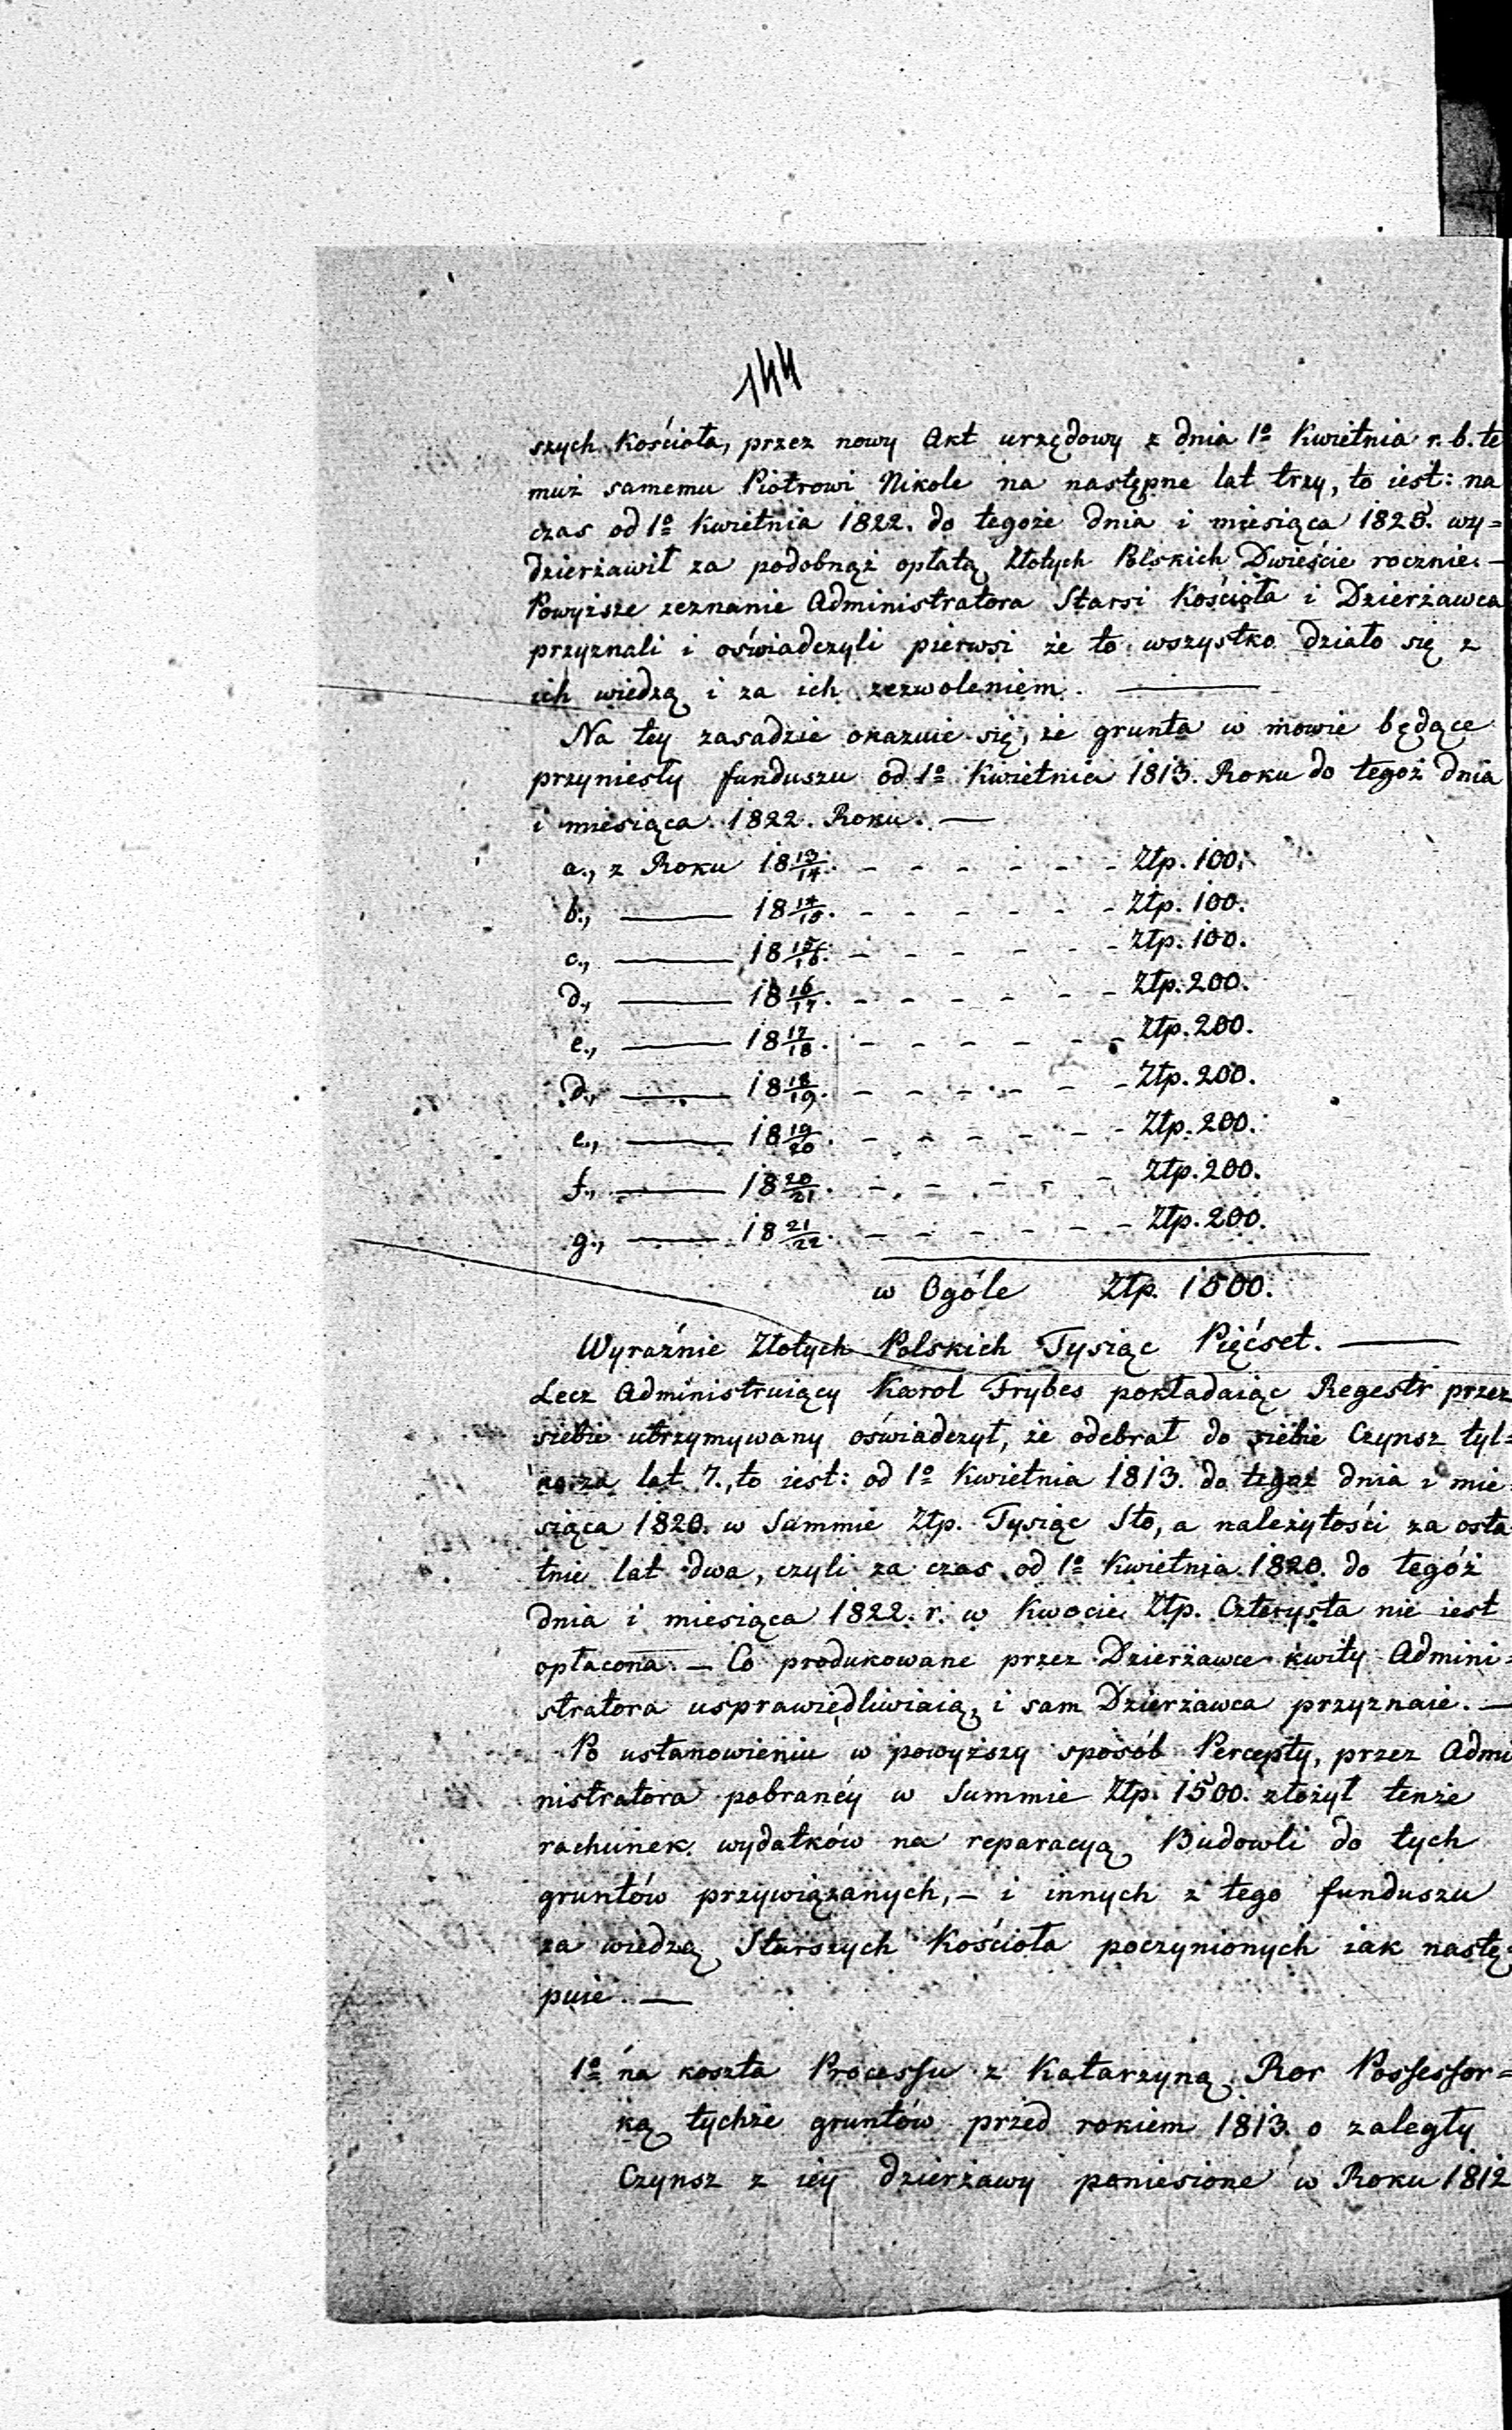 144
szych Kościoła, przez nowy Akt urzędowy z dnia 1º Kwietnia r. b. te
muż samemu Piotrowi Nikole na następne lat trzy, to iest: na
czas od 1º Kwietnia 1822. do tegoże dnia i miesiąca 1825. wy=
dzierżawił za podobnąż opłatą Złotych Polskich Dwieście rocznie. —
Powyższe zeznanie Administratora Starsi Kościoła i Dzierżawca
przyznali i oświadczyli pierwsi że to wszystko działo się z
ich wiedzą i za ich zezwoleniem. ———
Na tey zasadzie okazuie się, że grunta w mowie będące
przyniesły funduszu od 1º Kwietnia 1813. Roku do tegoż dnia
i miesiąca 1822. Roku. —
a., z Roku 18 13/14. - - - - - - Ztp. 100.
b., ——— 18 14/15. - - - - - - Ztp. 100.
c., ——— 18 15/16. - - - - - - Ztp. 100.
d., ——— 18 16/17. - - - - - - Ztp. 200.
e., ——— 18 17/18. - - - - - - Ztp. 200.
d., ——— 18 18/19. - - - - - - Ztp. 200.
e., ——— 18 19/20. - - - - - - Ztp. 200.
f., ——— 18 20/21. - - - - - - Ztp. 200.
g., ——— 18 21/22. - - - - - - Ztp. 200.
w Ogóle Ztp. 1500.
Wyraźnie Złotych Polskich Tysiąc Pięćset. ———
Lecz Administruiący Karol Trybes pokładaiąc Regestr przez
siebie utrzymywany oświadczył, że odebrał do siebie Czynsz tyl=
ko za lat 7., to iest: od 1º Kwietnia 1813. do tegoż dnia i mie
siąca 1820. w Summie Ztp. Tysiąc Sto, a należytości za osta
tnie lat dwa, czyli za czas od 1º Kwietnia 1820. do tegóż
dnia i miesiąca 1822. r. w Kwocie Ztp. Czterysta nie iest
opłacona. — Co produkowane przez Dzierżawce kwity Admini=
stratora usprawiedliwiaią, i sam Dzierżawca przyznaie. —
Po ustanowieniu w powyższy sposób Percepty, przez Admi
nistratora pobranéy w Summie Ztp. 1500. złożył tenże
rachunek wydatków na reparacyą Budowli do tych
gruntów przywiązanych, — i innych z tego funduszu
za wiedzą Starszych Kościoła poczynionych iak nastę=
puie. —
1º na koszta Processu z Katarzyną Ror Possessor=
ką tychże gruntów przed rokiem 1813. o zaległy
Czynsz z iéy dzierżawy poniesione w Roku 1812